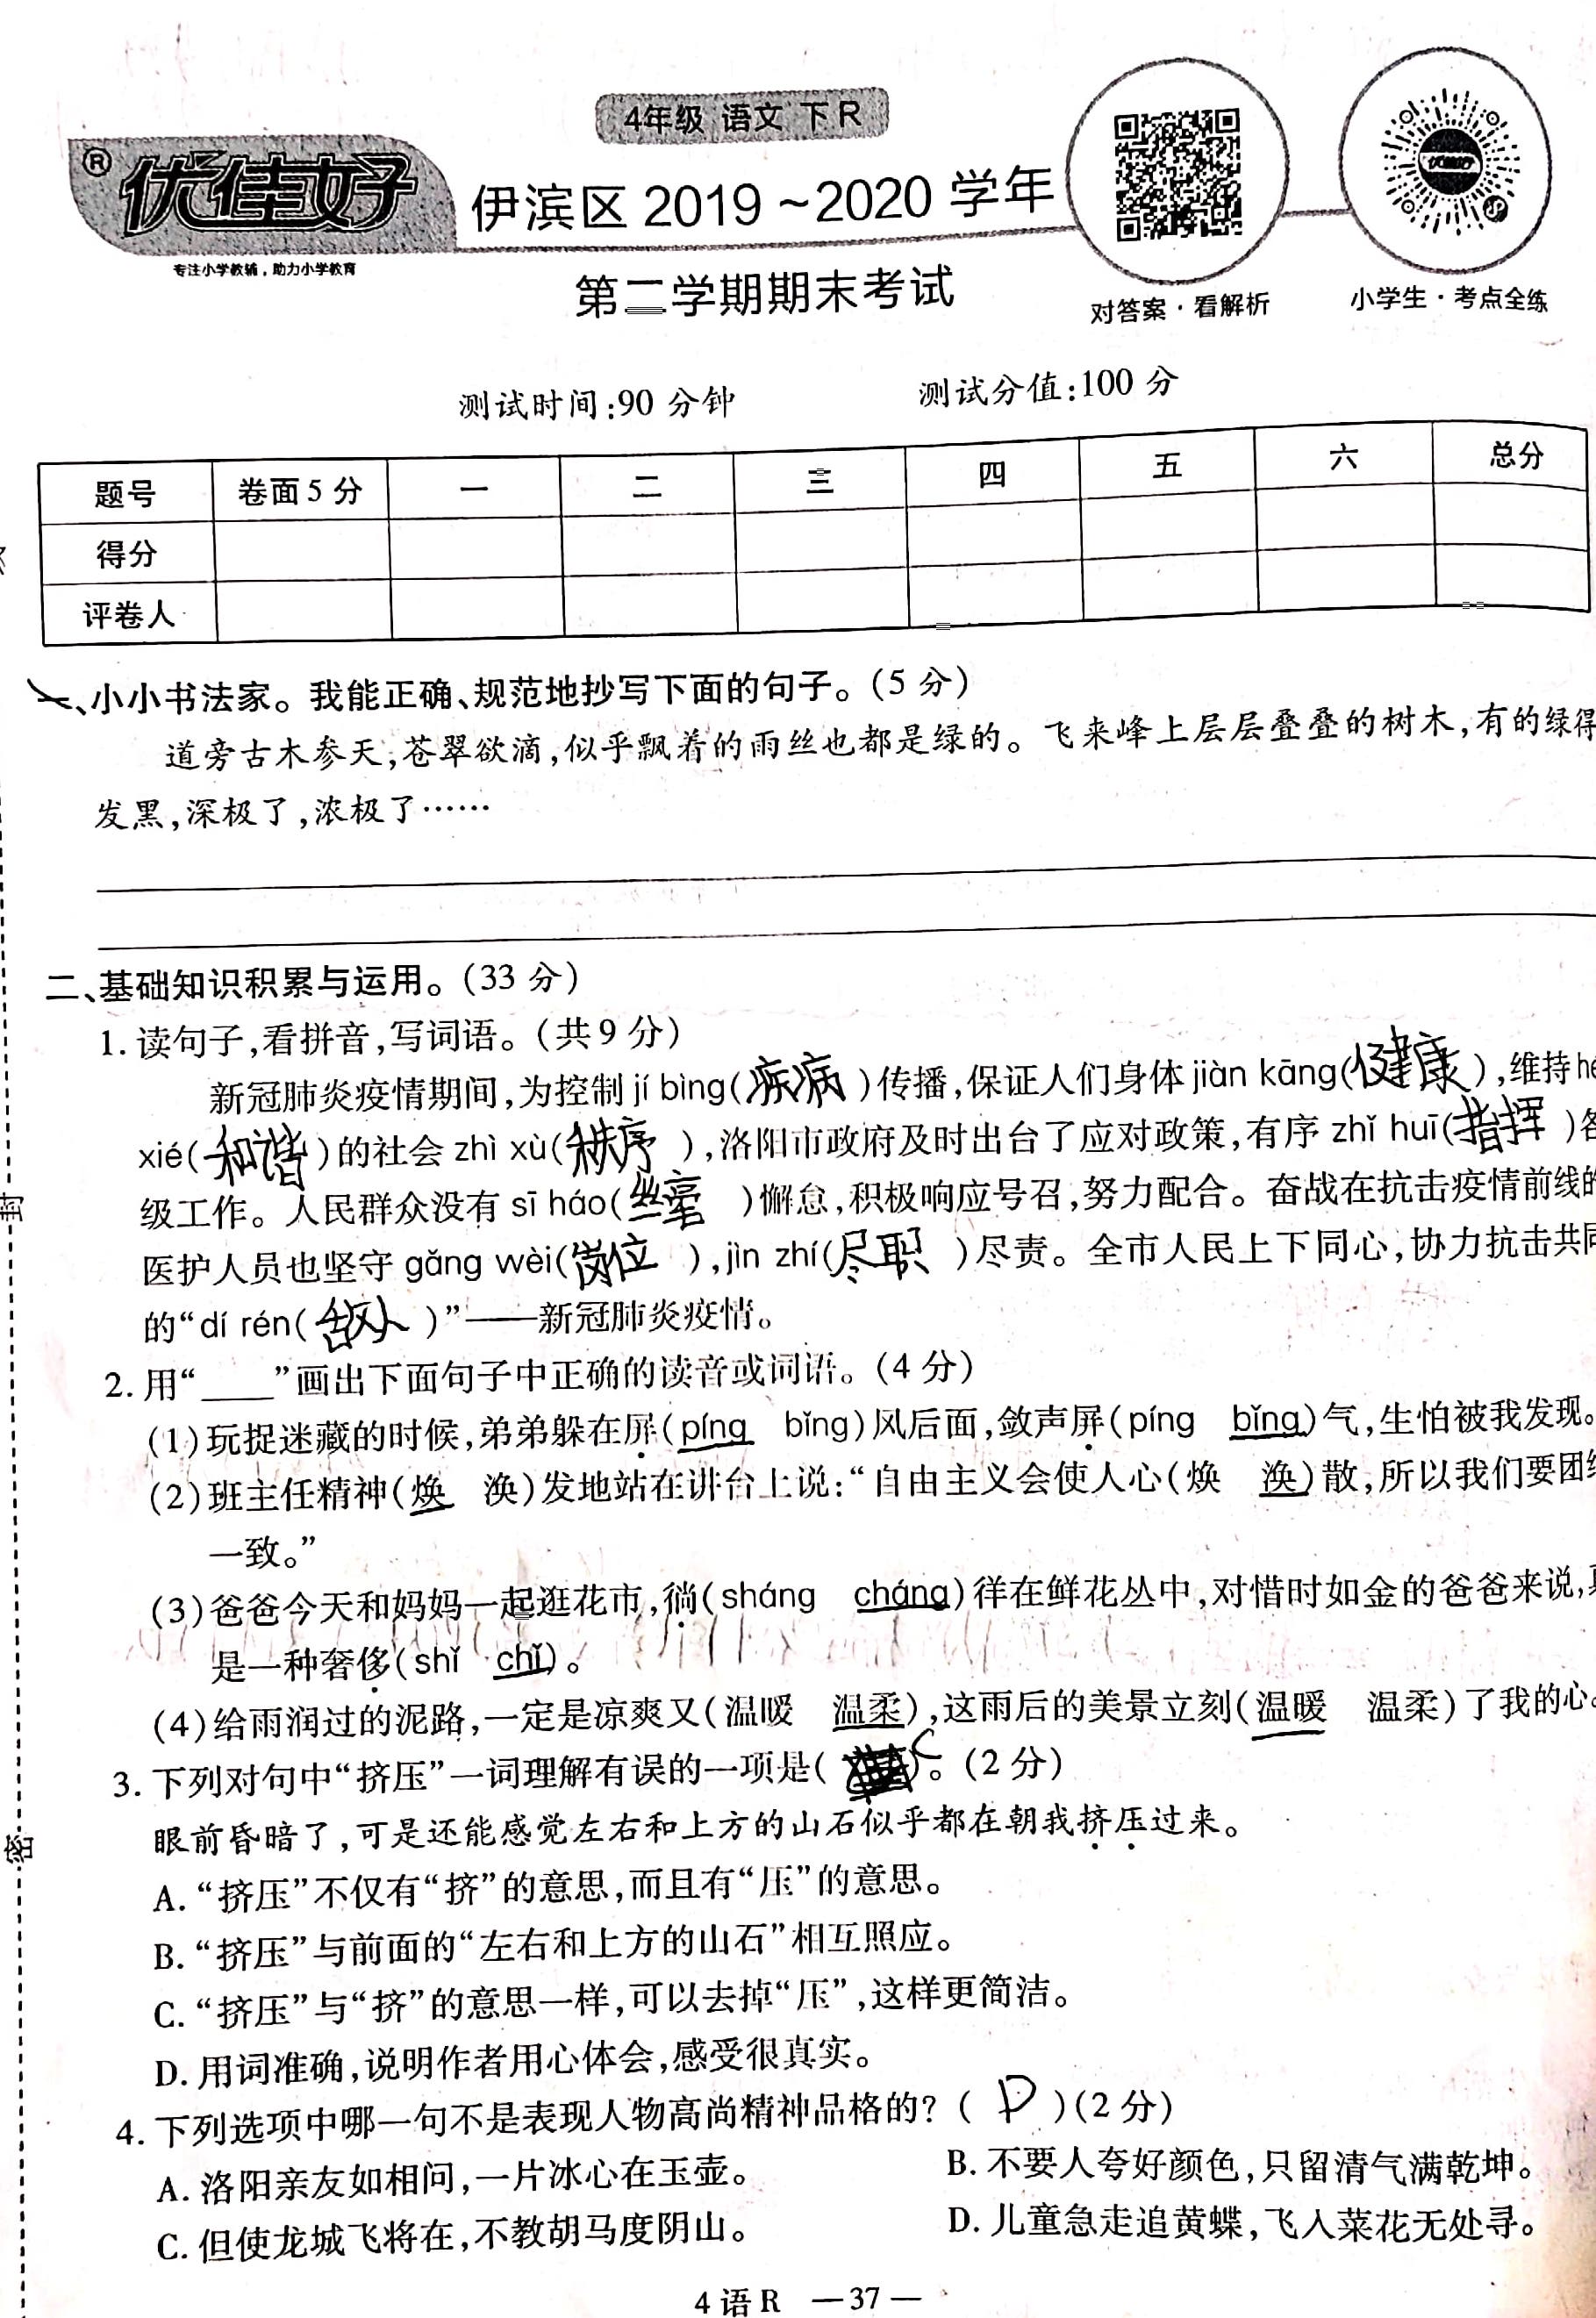 4年级 语文 下R
®优佳好
专注小学教辅，助力小学教育
伊滨区 2019 ~2020 学年
第二学期期末考试
对答案·看解析
优佳好
小学生·考点全练
测试时间:90 分钟 测试分值:100 分
题号 卷面5分 一 二 三 四 五 六 总分
得分
评卷人
一、小小书法家。我能正确、规范地抄写下面的句子。(5 分)
道旁古木参天,苍翠欲滴,似乎飘着的雨丝也都是绿的。飞来峰上层层叠叠的树木,有的绿得
发黑,深极了,浓极了……
二、基础知识积累与运用。(33 分)
1. 读句子,看拼音,写词语。(共9 分)
新冠肺炎疫情期间,为控制 jí bìng(疾病)传播,保证人们身体 jiàn kāng(健康),维持
xié(和谐)的社会 zhì xù(秩序),洛阳市政府及时出台了应对政策,有序 zhǐ huī(指挥)各
级工作。人民群众没有 sī háo(丝毫)懈怠,积极响应号召,努力配合。奋战在抗击疫情前线的
医护人员也坚守 gǎng wèi(岗位),jìn zhí(尽职)尽责。全市人民上下同心,协力抗击共同
的“dí rén(敌人)”——新冠肺炎疫情。
2. 用“____”画出下面句子中正确的读音或词语。(4 分)
(1)玩捉迷藏的时候,弟弟躲在屏(píng bǐng)风后面,敛声屏(píng bǐng)气,生怕被我发现。
(2)班主任精神(焕 涣)发地站在讲台上说:“自由主义会使人心(焕 涣)散,所以我们要团结
一致。”
(3)爸爸今天和妈妈一起逛花市,徜(sháng cháng)徉在鲜花丛中,对惜时如金的爸爸来说,真
是一种奢侈(shǐ chǐ)。
(4)给雨润过的泥路,一定是凉爽又(温暖 温柔),这雨后的美景立刻(温暖 温柔)了我的心。
3. 下列对句中“挤压”一词理解有误的一项是( C )。(2 分)
眼前昏暗了,可是还能感觉左右和上方的山石似乎都在朝我挤压过来。
A. “挤压”不仅有“挤”的意思,而且有“压”的意思。
B. “挤压”与前面的“左右和上方的山石”相互照应。
C. “挤压”与“挤”的意思一样,可以去掉“压”,这样更简洁。
D. 用词准确,说明作者用心体会,感受很真实。
4. 下列选项中哪一句不是表现人物高尚精神品格的? ( D )(2 分)
A. 洛阳亲友如相问,一片冰心在玉壶。 B. 不要人夸好颜色,只留清气满乾坤。
C. 但使龙城飞将在,不教胡马度阴山。 D. 儿童急走追黄蝶,飞入菜花无处寻。
4 语 R —37—
封
密